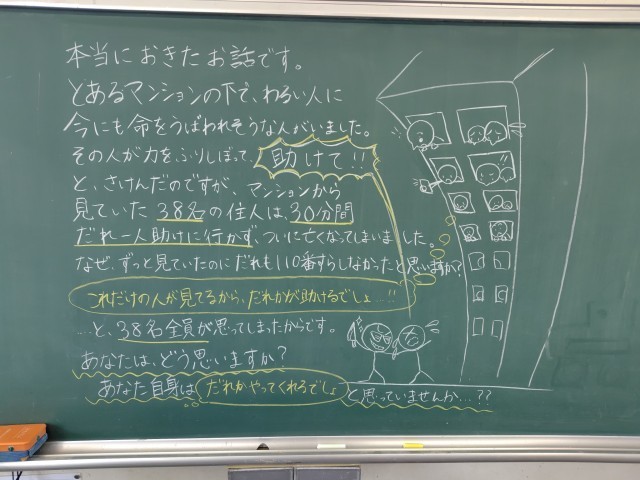 本当におきたお話です。
とあるマンションの下で、わるい人に
今にも命をうばわれそうな人がいました。
その人が力をふりしぼって、助けて!!
と、さけんだのですが、マンションから
見ていた38名の住人は、30分間
だれ一人助けに行かず、ついに亡くなってしまいました。
なぜ、ずっと見ていたのにだれも110番すらしなかったと思いますか?
これだけの人が見てるから、だれかが助けるでしょ…!!
…と、38名全員が思ってしまったからです。
あなたは、どう思いますか?
あなた自身はだれかやってくれるでしょと思っていませんか…??